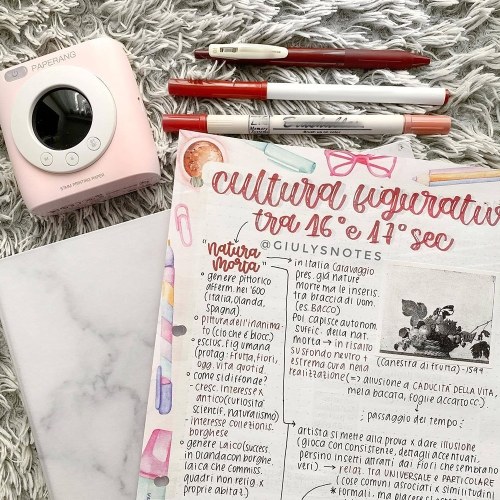 PAPERANG
cultura figurativa
tra 16° e 17° sec
@GIULYSNOTES
"natura
morta"
° genere pittorico
afferm. nel '600
(Italia, Olanda,
Spagna)
° pittura dell'inanima
to (ciò che è blocc.)
° esclus. fig umana
(protag: frutta, fiori,
ogg. vita quotid.
° come si diffonde?
- cresc. interesse x
antico (curiosità
scientif. naturalismo)
- interesse collezionis.
borghese
° genere laico (success.
in Olanda con borghe.
laica che commiss.
quadri non relig x
proprie abitaz.)
in Italia Caravaggio
pres. già nature
morte ma le inseris.
tra braccia di uom.
(es. Bacco)
Poi capisce autonom.
suffic. della nat.
morta → in risalto
su sfondo neutro +
estrema cura nella
realizzazione (=> allusione a CADUCITÀ DELLA VITA,
mela bacata, foglie accartocc.)
(Canestra di frutta) - 1599
↓
passaggio del tempo
artista si mette alla prova x dare illusione
(gioca con consistenze, dettagli accentuati,
persino insetti attratti dai fiori che sembrano
veri) → relaz. tra UNIVERSALE e PARTICOLARE
(cose comuni associati x similitudi
* Formali, ma placere